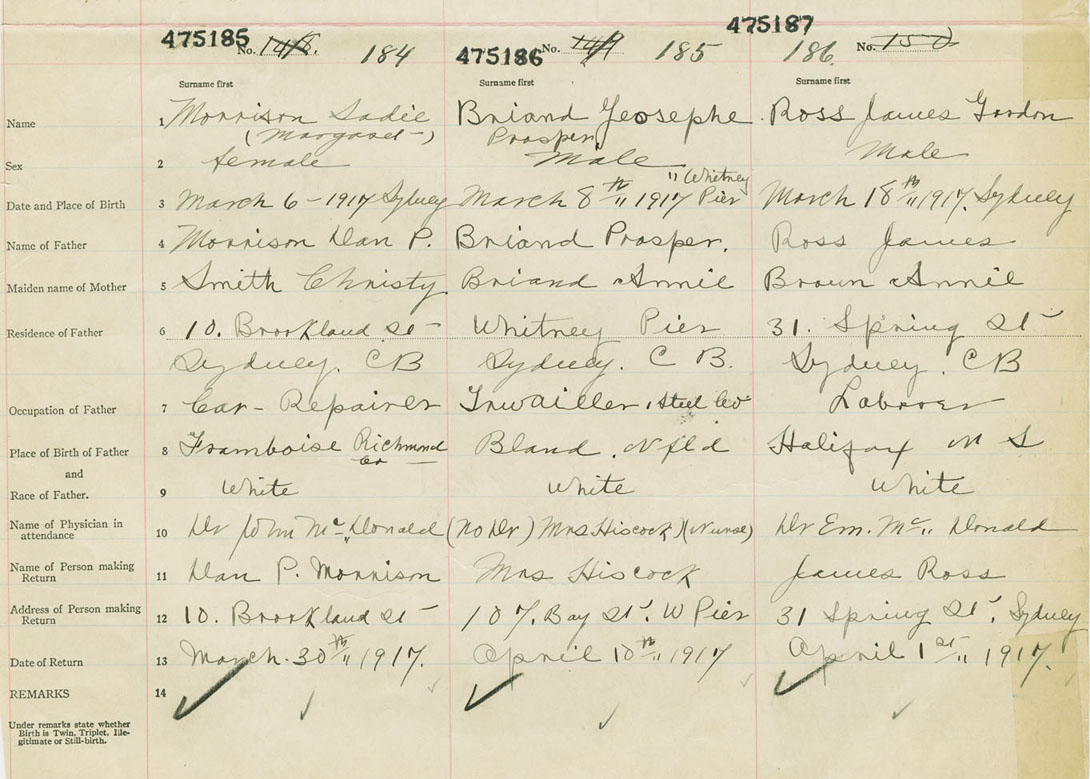 475185 No. 148. 184 475186 No. 149 185 475187 186. No. 150
Surname first Surname first Surname first
Name 1 Morrison Sadie Briand Jeosephe Ross James Gordon
(Margaret) Prosper
Sex 2 female Male Male
" Whitney
Date and Place of Birth 3 March 6 - 1917 Sydney March 8th " 1917 Pier March 18th " 1917. Sydney
Name of Father 4 Morrison Dan P. Briand Prosper. Ross James
Maiden name of Mother 5 Smith Christy Briand Annie Brown Annie
Residence of Father 6 10. Brookland St Whitney Pier 31. Spring St
Sydney. C B Sydney. C B. Sydney. C B
Occupation of Father 7 Car - Repairer Steel Co Labroer
Place of Birth of Father 8 Framboise Richmond Co Bland. Nfld Halifax N S
and
Race of Father. 9 White White White
Name of Physician in attendance 10 Dr John Mc " Donald (No Dr) Mrs Hiscock (Nurse) Dr Em. Mc " Donald
Name of Person making Return 11 Dan P. Morrison Mrs Hiscock James Ross
Address of Person making Return 12 10. Brookland St 107. Bay St. W Pier 31 Spring St. Sydney
Date of Return 13 March. 30th " 1917. April 10th " 1917 April 1st " 1917.
REMARKS 14
Under remarks state whether
Birth is Twin, Triplet, Ille-
gitimate or Still-birth.